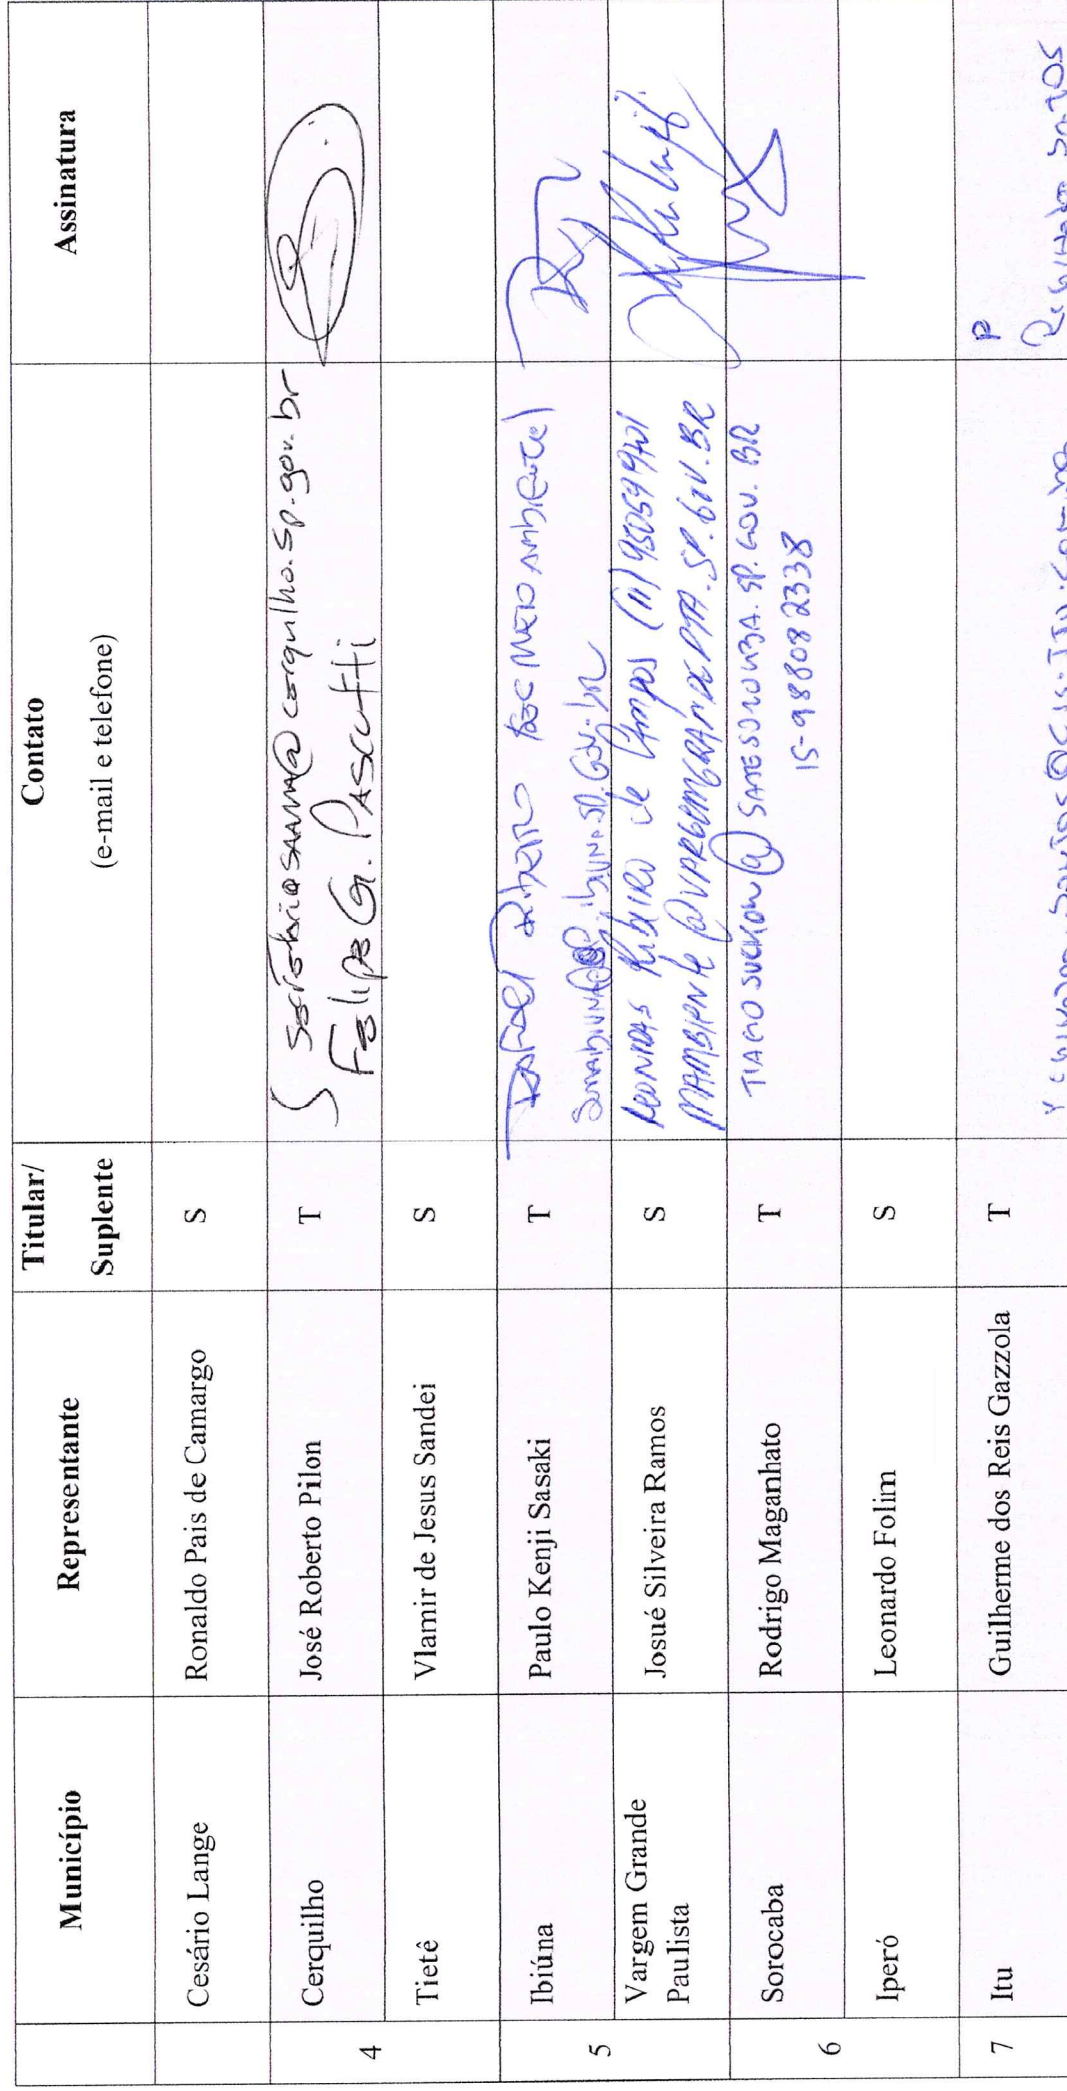 Município Representante Titular/ Suplente Contato (e-mail e telefone) Assinatura
Cesário Lange Ronaldo Pais de Camargo S
4 Cerquilho José Roberto Pilon T
secretariaSAAMA@cerquilho.sp.gov.br
Felipe G. Pascutti
Tietê Vlamir de Jesus Sandei S
5 Ibiúna Paulo Kenji Sasaki T
Rafael Ribeiro Sec Meio Ambiente
Vargem Grande Paulista Josué Silveira Ramos S
Leonidas Ribeiro de Campos (11)
MAMBIENTE@VARGEMGRANDEPTA.SP.GOV.BR
6 Sorocaba Rodrigo Maganhato T
TIAGO SUCKOW @ .SP.GOV.BR
15-98808 2338
Iperó Leonardo Folim S
7 Itu Guilherme dos Reis Gazzola T
P
Santos